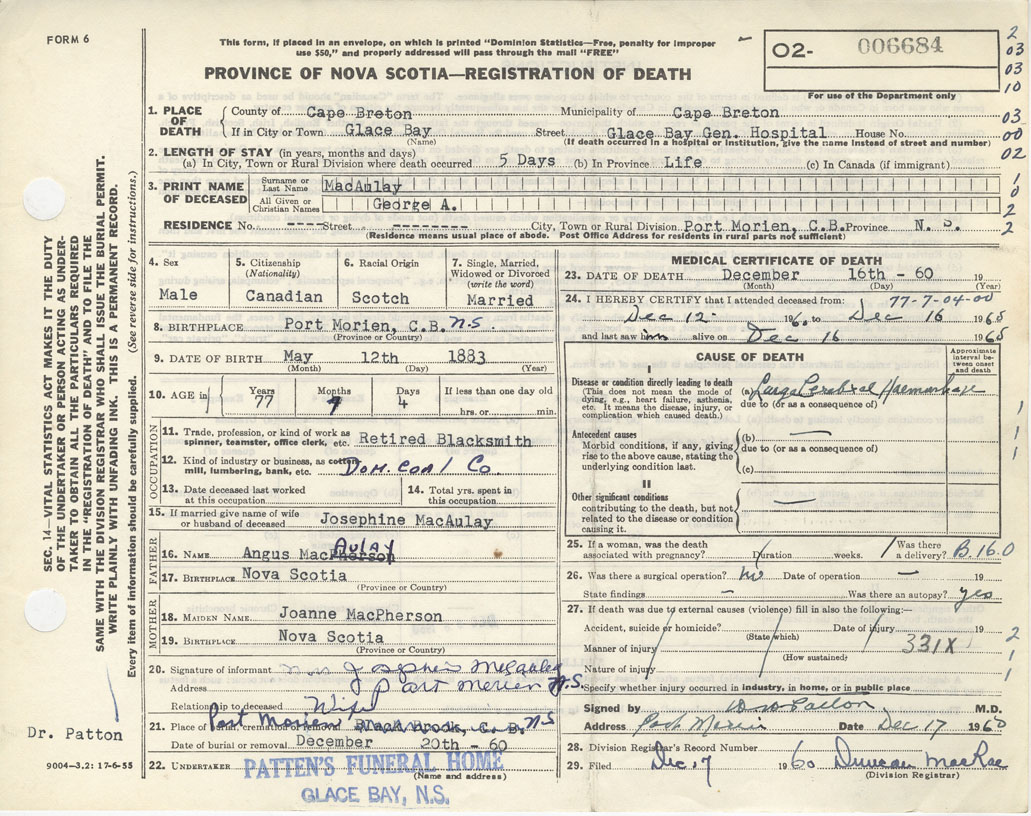 FORM 6
This form, if placed in an envelope, on which is printed "Dominion Statistics—Free, penalty for improper
use $50," and properly addressed will pass through the mail "FREE"
PROVINCE OF NOVA SCOTIA—REGISTRATION OF DEATH
O2- 006684
For use of the Department only
2
03
03
10
1. PLACE OF DEATH County of Cape Breton Municipality of Cape Breton 03
If in City or Town Glace Bay Street Glace Bay Gen. Hospital House No. 00
(Name) (If death occurred in a hospital or institution, give the name instead of street and number)
2. LENGTH OF STAY (in years, months and days) 02
(a) In City, Town or Rural Division where death occurred 5 Days (b) In Province Life (c) In Canada (if immigrant)
3. PRINT NAME OF DECEASED Surname or Last Name MacAulay 1
All Given or Christian Names George A. 0
2
RESIDENCE No. ---- Street -------- City, Town or Rural Division Port Morien, C.B. Province N. S. 2
(Residence means usual place of abode. Post Office Address for residents in rural parts not sufficient)
4. Sex
Male
5. Citizenship
(Nationality)
Canadian
6. Racial Origin
Scotch
7. Single, Married,
Widowed or Divorced
(write the word)
Married
8. BIRTHPLACE Port Morien, C.B. N.S.
(Province or Country)
9. DATE OF BIRTH May 12th 1883
(Month) (Day) (Year)
10. AGE in Years 77 Months 7 Days 4 If less than one day old
hrs. or min.
OCCUPATION
11. Trade, profession, or kind of work as
spinner, teamster, office clerk, etc. Retired Blacksmith
12. Kind of industry or business, as cotton
mill, lumbering, bank, etc. Dom. Coal Co.
13. Date deceased last worked
at this occupation
14. Total yrs. spent in
this occupation
15. If married give name of wife
or husband of deceased Josephine MacAulay
FATHER
16. NAME Angus MacPherson Aulay
17. BIRTHPLACE Nova Scotia
(Province or Country)
MOTHER
18. MAIDEN NAME Joanne MacPherson
19. BIRTHPLACE Nova Scotia
(Province or Country)
20. Signature of informant Mrs Josephine
Address Port Morien N.S.
Relationship to deceased Wife
21. Place of burial, cremation or removal Port Morien Black Brook, C. B. N.S
Date of burial or removal December 20th - 60
22. UNDERTAKER PATTEN'S FUNERAL HOME
(Name and address)
GLACE BAY, N.S.
MEDICAL CERTIFICATE OF DEATH
23. DATE OF DEATH December 16th - 60 19
(Month) (Day) (Year)
24. I HEREBY CERTIFY that I attended deceased from: 77-7-04-00
Dec 12 1960 to Dec 16 1960
and last saw him alive on Dec 16 1960
CAUSE OF DEATH
Approximate
interval be-
tween onset
and death
I
Disease or condition directly leading to death
(This does not mean the mode of
dying, e.g., heart failure, asthenia,
etc. It means the disease, injury, or
complication which caused death.)
(a) Large Cerebral Haemorrhage
due to (or as a consequence of)
Antecedent causes
Morbid conditions, if any, giving
rise to the above cause, stating the
underlying condition last.
(b) —
due to (or as a consequence of)
(c)
II
Other significant conditions
contributing to the death, but not
related to the disease or condition
causing it.
—
1
1
1
25. If a woman, was the death
associated with pregnancy? Duration weeks. Was there
a delivery? B.16.0
26. Was there a surgical operation? No Date of operation — 19
State findings — Was there an autopsy? yes
27. If death was due to external causes (violence) fill in also the following:—
Accident, suicide or homicide? Date of injury 19
(State which)
Manner of injury 331X
(How sustained)
Nature of injury
2
1
1
Specify whether injury occurred in industry, in home, or in public place
Signed by Patton M.D.
Address Port Morien Date Dec 17 1960
28. Division Registrar's Record Number
29. Filed Dec. 17 1960 Duncan MacRae
(Division Registrar)
SEC. 14—VITAL STATISTICS ACT MAKES IT THE DUTY
OF THE UNDERTAKER OR PERSON ACTING AS UNDER-
TAKER TO OBTAIN ALL THE PARTICULARS REQUIRED
IN THE "REGISTRATION OF DEATH" AND TO FILE THE
SAME WITH THE DIVISION REGISTRAR WHO SHALL ISSUE THE BURIAL PERMIT.
WRITE PLAINLY WITH UNFADING INK. THIS IS A PERMANENT RECORD.
Every item of information should be carefully supplied. (See reverse side for instructions.)
Dr. Patton
9004—3.2: 17-6-55